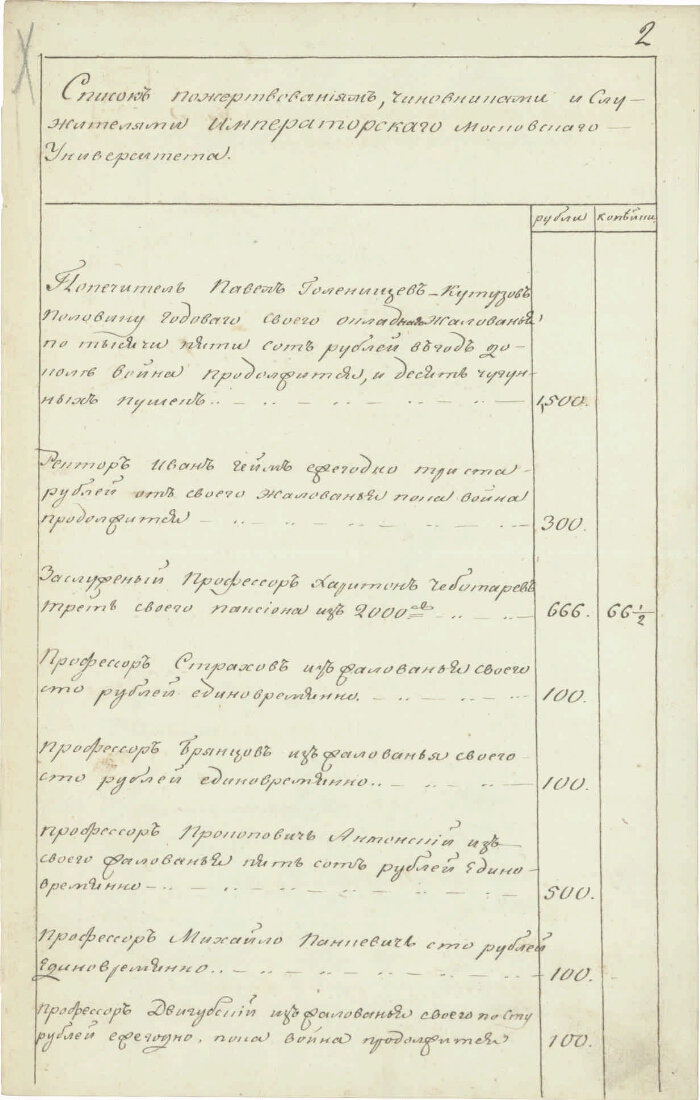 2
Списокъ пожертвованіямъ, чиновниками и Слу-
жителями Императорскаго Московскаго
Университета.
рубли копѣйки
Попечитель Павелъ Голенищевъ-Кутузовъ
половину годоваго своего окладнаго жалованья
по тысячи пяти сотъ рублей въ годъ до-
колѣ война продолжится, и десять чугун-
ныхъ пушекъ 1,500.
Ректоръ Иванъ Геймъ ежегодно три ста
рублей отъ своего жалованья пока война
продолжится 300.
Заслуженый Профессоръ Харитонъ Чеботаревъ
треть своего пансіона изъ 2000 666. 66 1/2
Профессоръ Страховъ изъ жалованья своего
сто рублей единовремянно. 100.
Профессоръ Брянцовъ изъ жалованья своего
сто рублей единовремянно. 100.
Профессоръ Прокоповичь Антонскій изъ
своего жалованья пять сотъ рублей Едино-
времянно 500.
Профессоръ Михайло Панкевичь сто рублей
Единовремянно. 100.
Профессоръ Двигубскій изъ жалованья своего по сту
рублей ежегодно, пока война продолжится 100.